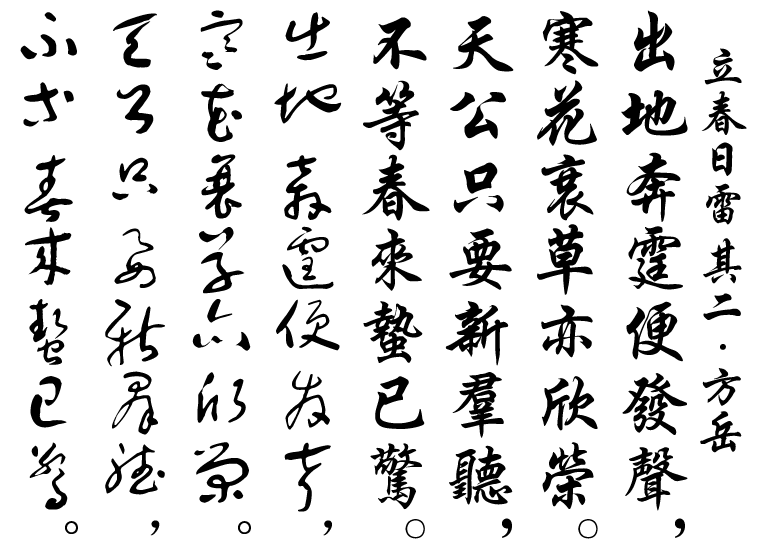 立春日雷其二．方岳
出地奔霆便發聲，
寒花衰草亦欣榮。
天公只要新羣聽，
不等春來蟄已驚。
出地奔霆便發聲，
寒花衰草亦欣榮。
天公只要新羣聽，
不等春來蟄已驚。